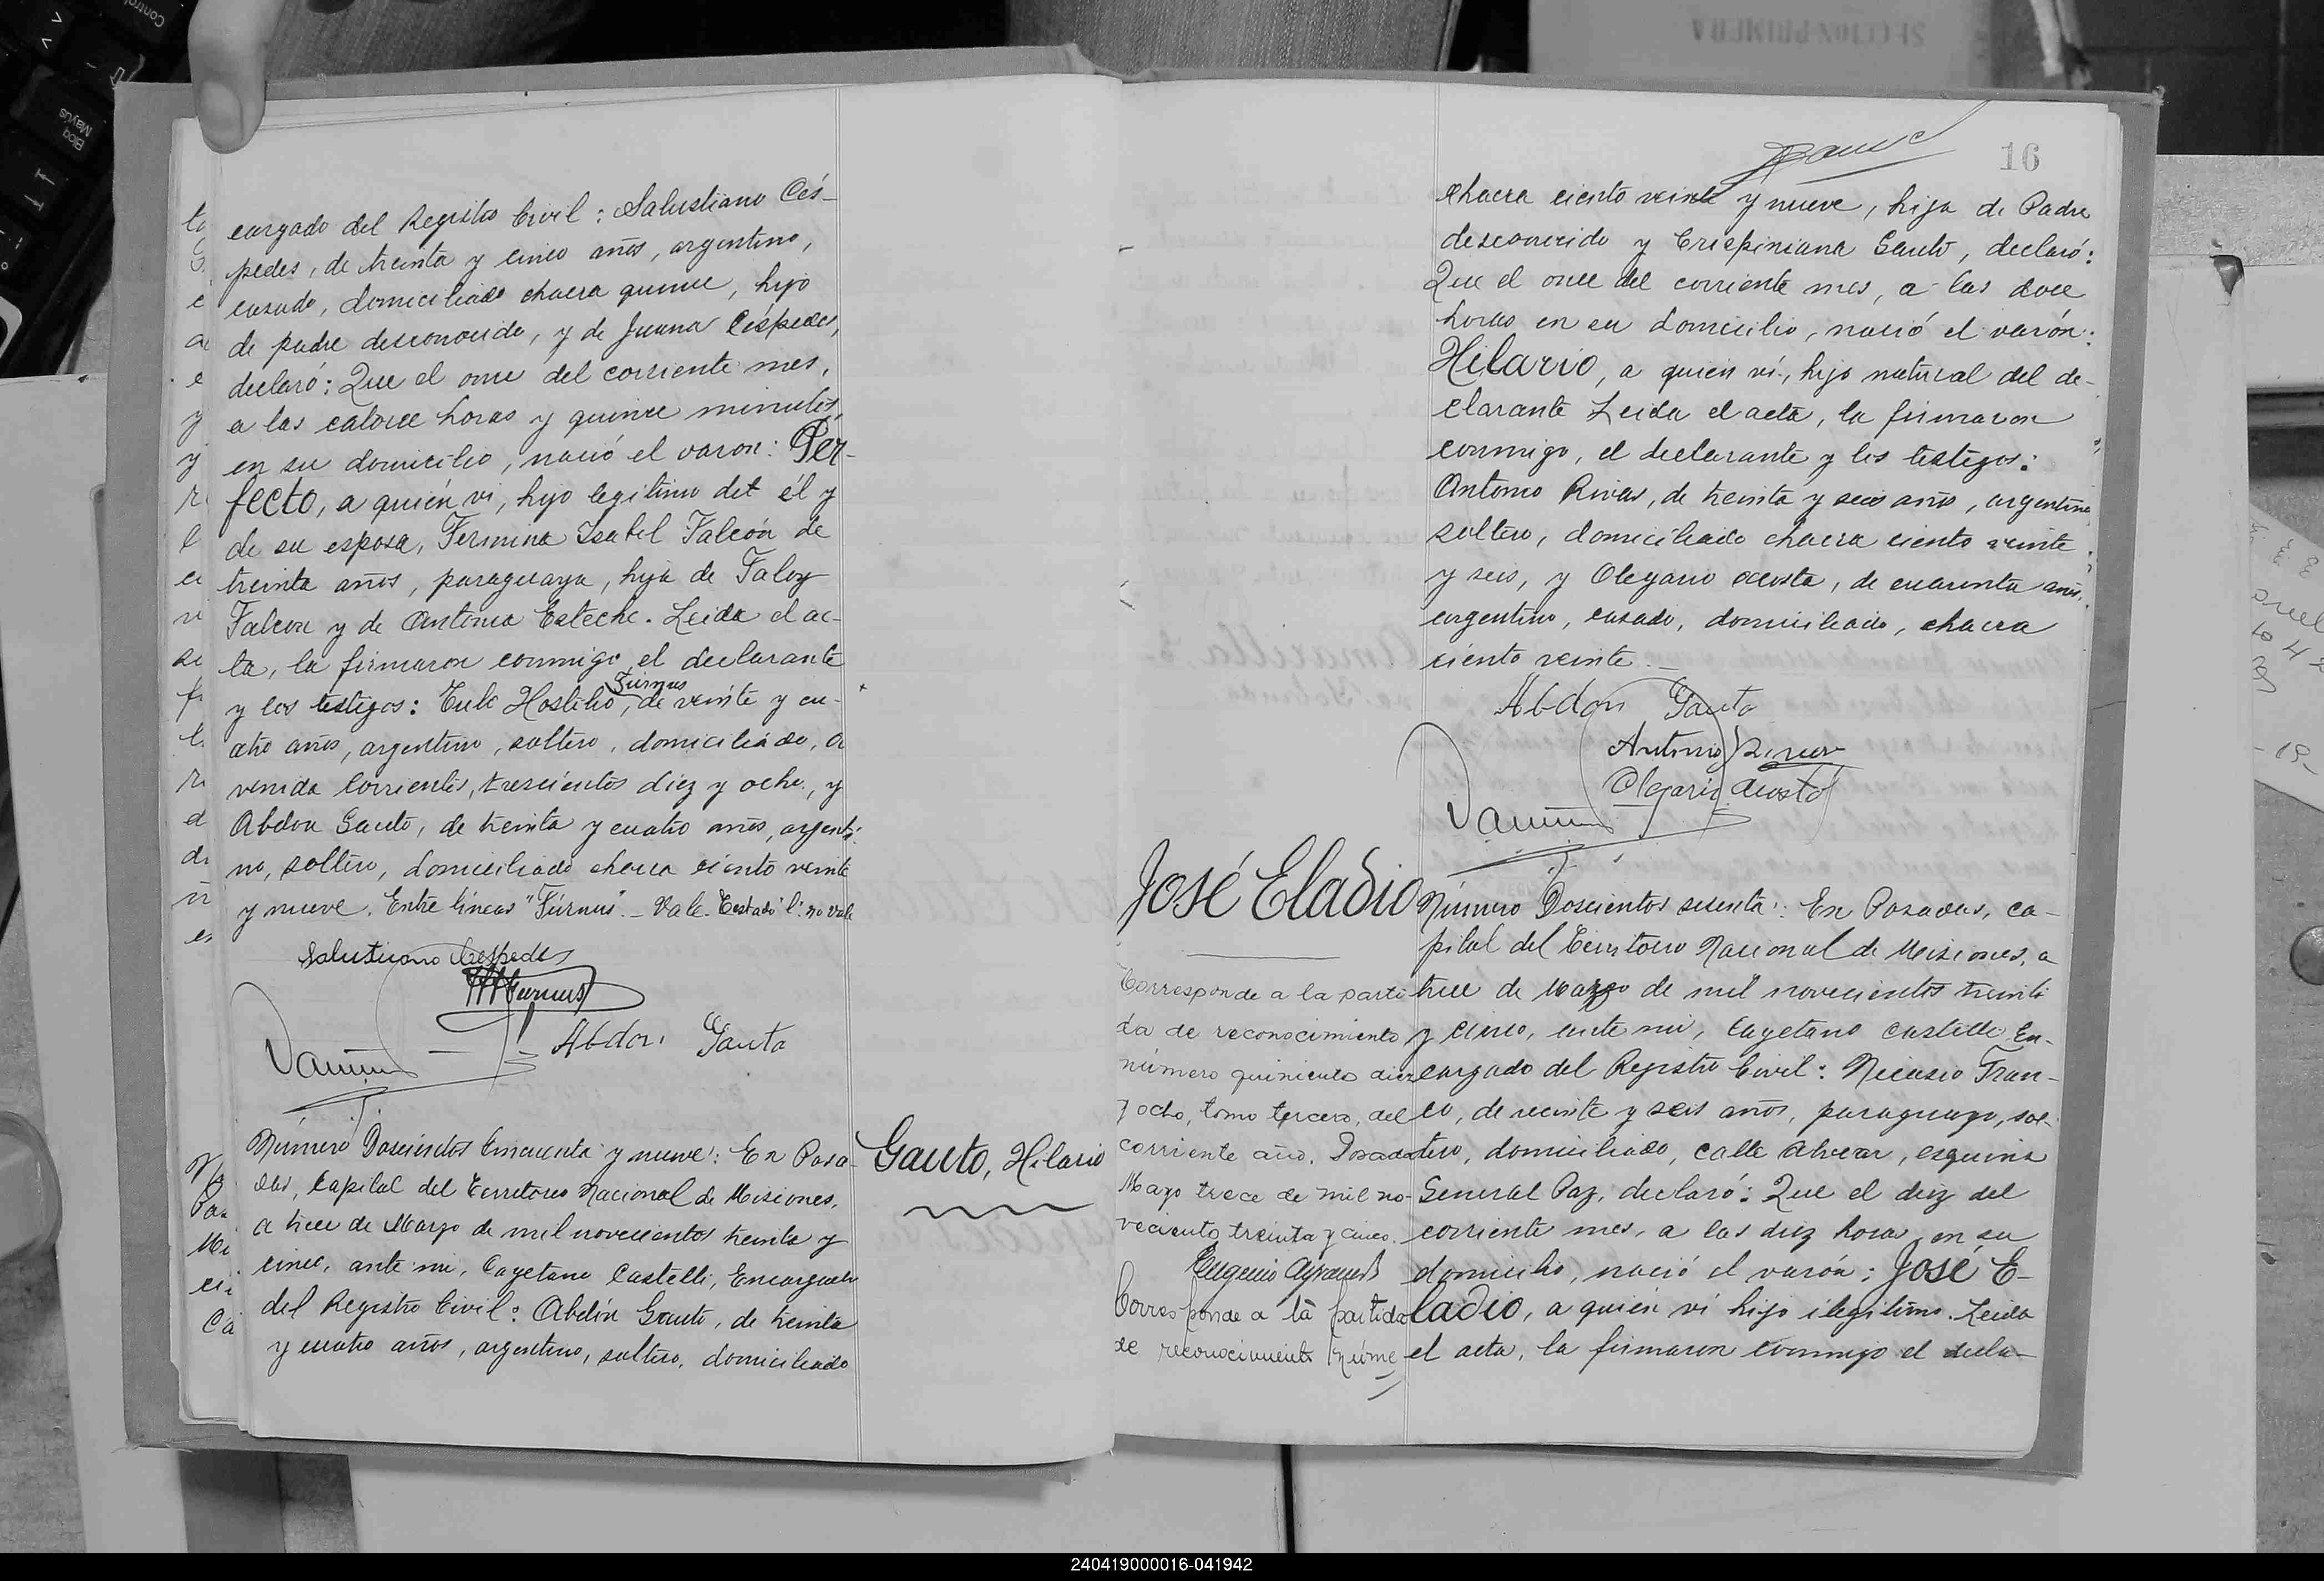 cargado del Registro Civil: Salustiano Cés-
pedes, de treinta y cinco años, argentino,
casado, domiciliado chacra quince, hijo
de padre desconocido, y de Juana Céspedes,
declaró: Que el once del corriente mes,
a las catorce horas y quince minutos,
en su domicilio, nació el varon: Per-
fecto, a quién vi, hijo legitimo det él y
de su esposa, Fermina Isabel Falcón de
treinta años, paraguaya, hija de
Falcon y de Antonia Esteche. Leida el ac-
ta, la firmaron conmigo, el declarante
y los testigos: Tulo Hostilio, Fúrnus de veinte y cu-
atro años, argentino, soltero, domiciliado, a
venida Corrientes, trescientos diez y ocho, y
Abdon Gauto, de treinta y cuatro años, argenti-
no, soltero, domiciliado chacra ciento veinte
y nueve. Entre líneas "Fúrnus". - Vale. Testado "l": no vale
Salustiano Cespedes
Furnus
Abdon Gauto
Número Doscientos Cincuenta y nueve: En Posa-
das, Capital del Territorio Nacional de Misiones,
a trece de Marzo de mil novecientos treinta y
cinco, ante mi, Cayetano Castelli, Encargado
del Registro Civil: Abdón Gauto, de treinta
y cuatro años, argentino, soltero, domiciliado
Gauto, Hilario
16
chacra ciento veinte y nueve, hijo de Padre
desconocido y Crispiniana Gauto, declaró:
Que el once del corriente mes, a las doce
horas en su domicilio, nació el varón:
Hilario, a quien ví, hijo natural del de-
clarante Leida el acta, la firmaron
conmigo, el declarante y los testigos:
Antonio Rivas, de treinta y seis años, argentino
soltero, domiciliado chacra ciento veinte
y seis, y Olegario Acosta, de cuarenta años,
argentino, casado, domiciliado, chacra
ciento veinte.-
Abdon Gauto
Antonio Rivas
Olegario Acosta
José Eladio
Número Doscientos sesenta: En Posadas, ca-
pital del Territorio Nacional de Misiones, a
trece de Marzo de mil novecientos treinta
y cinco, ante mi, Cayetano Castelli, En-
cargado del Registro Civil: Nicasio Fran-
co, de veinte y seis años, paraguayo, sol-
tero, domiciliado, calle Alvear, esquina
General Paz, declaró: Que el diez del
corriente mes, a las diez horas, en su
domicilio, nació el varón: José E-
ladio, a quien vi hijo ilegitimo. Leida
el acta, la firmaron conmigo el decla-
Corresponde a la parti
da de reconocimiento
número quiniento diez
y ocho, tomo tercero, del
corriente año. Posadas
Mayo trece de mil no-
veciento treinta y cinco.
Corresponde a la partida
de reconocimiento núme
240419000016-041942